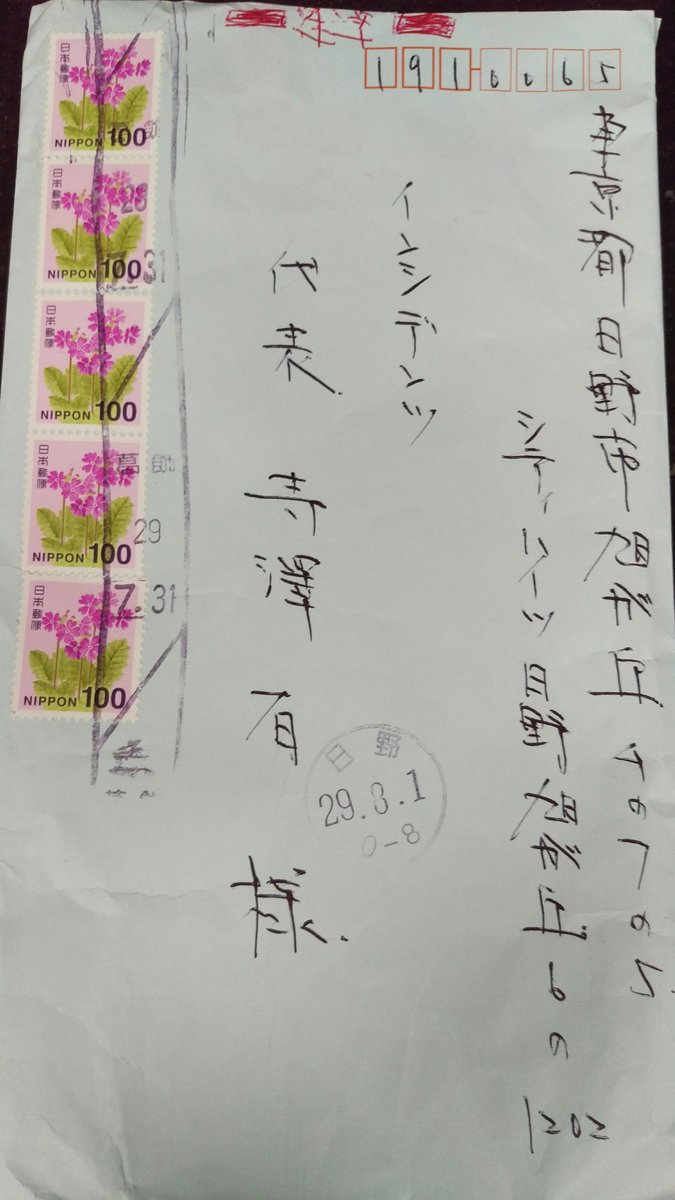 1910065
東京都日野市旭が丘
シティハイツ日野旭が丘6の
1202
インシデンツ
代表 寺澤有 様
日本郵便
NIPPON 100
日本郵便
NIPPON 100
日本郵便
NIPPON 100
日本郵便
NIPPON 100
日本郵便
NIPPON 100
葛飾
29
7.31
日野
29.8.1